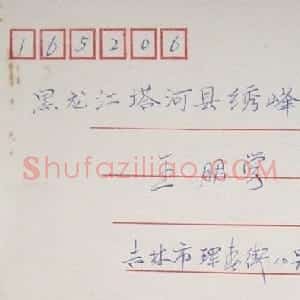 165206
黑龙江塔河县绣峰
Shufaziliao.COM
王明学
吉林市珲春街